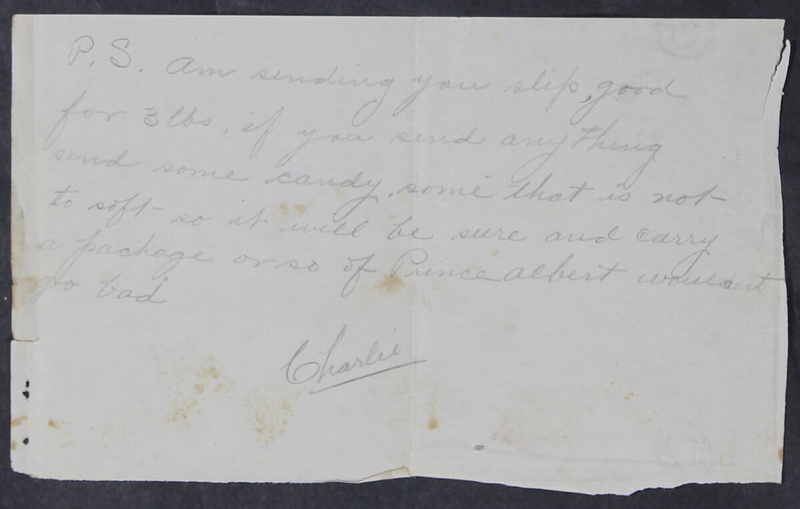 P.S. Am sending you slip, good
for 3 lbs, if you send anything
send some candy, some that is not
to soft so it will be sure and carry
a package or so of Prince Albert wouldnt
go bad
Charlie